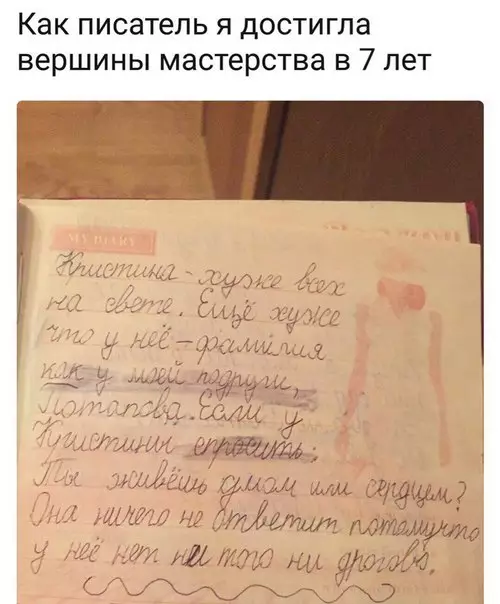 Как писатель я достигла
вершины мастерства в 7 лет
MY DIARY
Кристина - хуже всех
на свете. Ещё хуже
что у неё - фамилия
как у моей подруги,
Потапова. Если у
Кристины спросить:
Ты живёшь умом или сердцем?
Она ничего не ответит потомучто
у неё нет ни того ни дрогово.